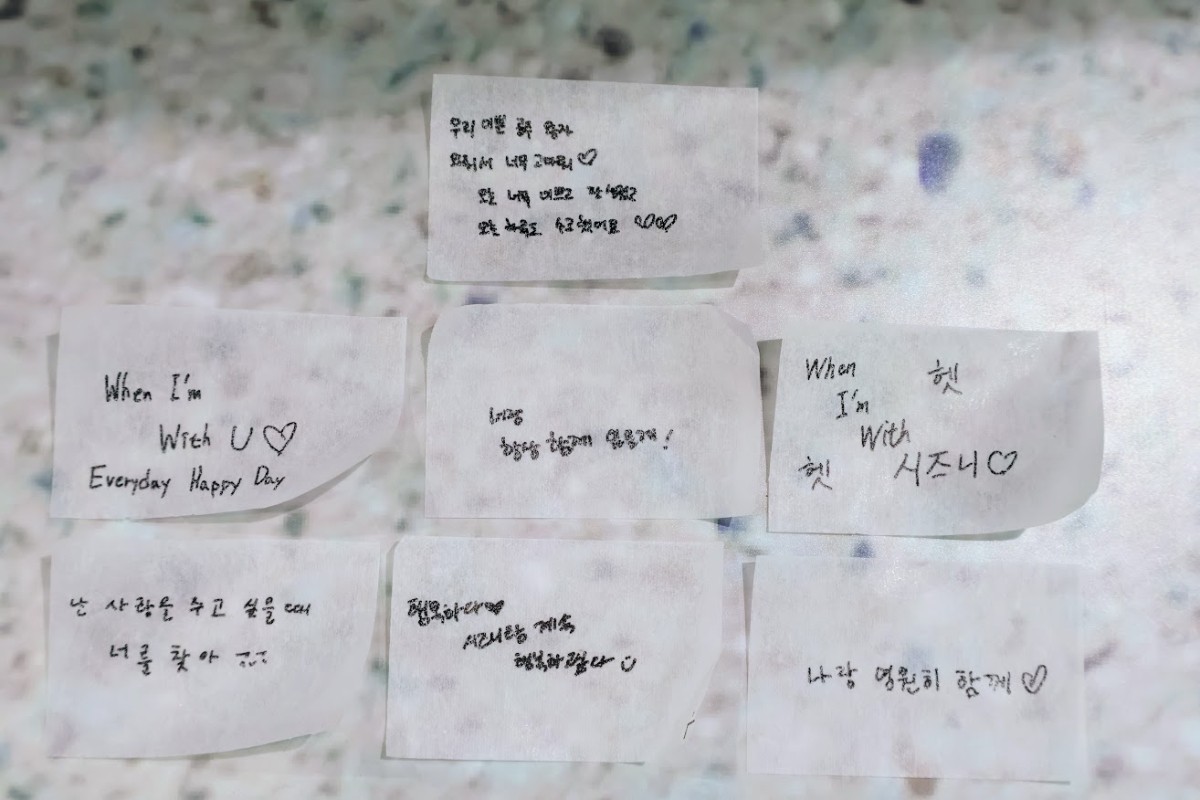 우리 이쁜 공주
와줘서 너무 고마워♡
오늘 너무 이쁘고
오늘 하루도 수고했어요 ♡♡
When I'm
With U♡
Everyday Happy Day
너랑
항상 함께
When 헷
I'm
With
헷 시즈니♡
난 사랑을 주고 싶을 때
너를 찾아
행복하다♥
시즈니랑 계속
행복하고싶다
나랑 영원히 함께♡